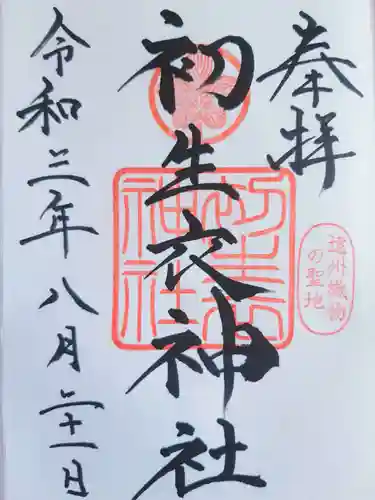 奉拝
遠州織物
の聖地
初生衣神社
令和三年八月二十一日